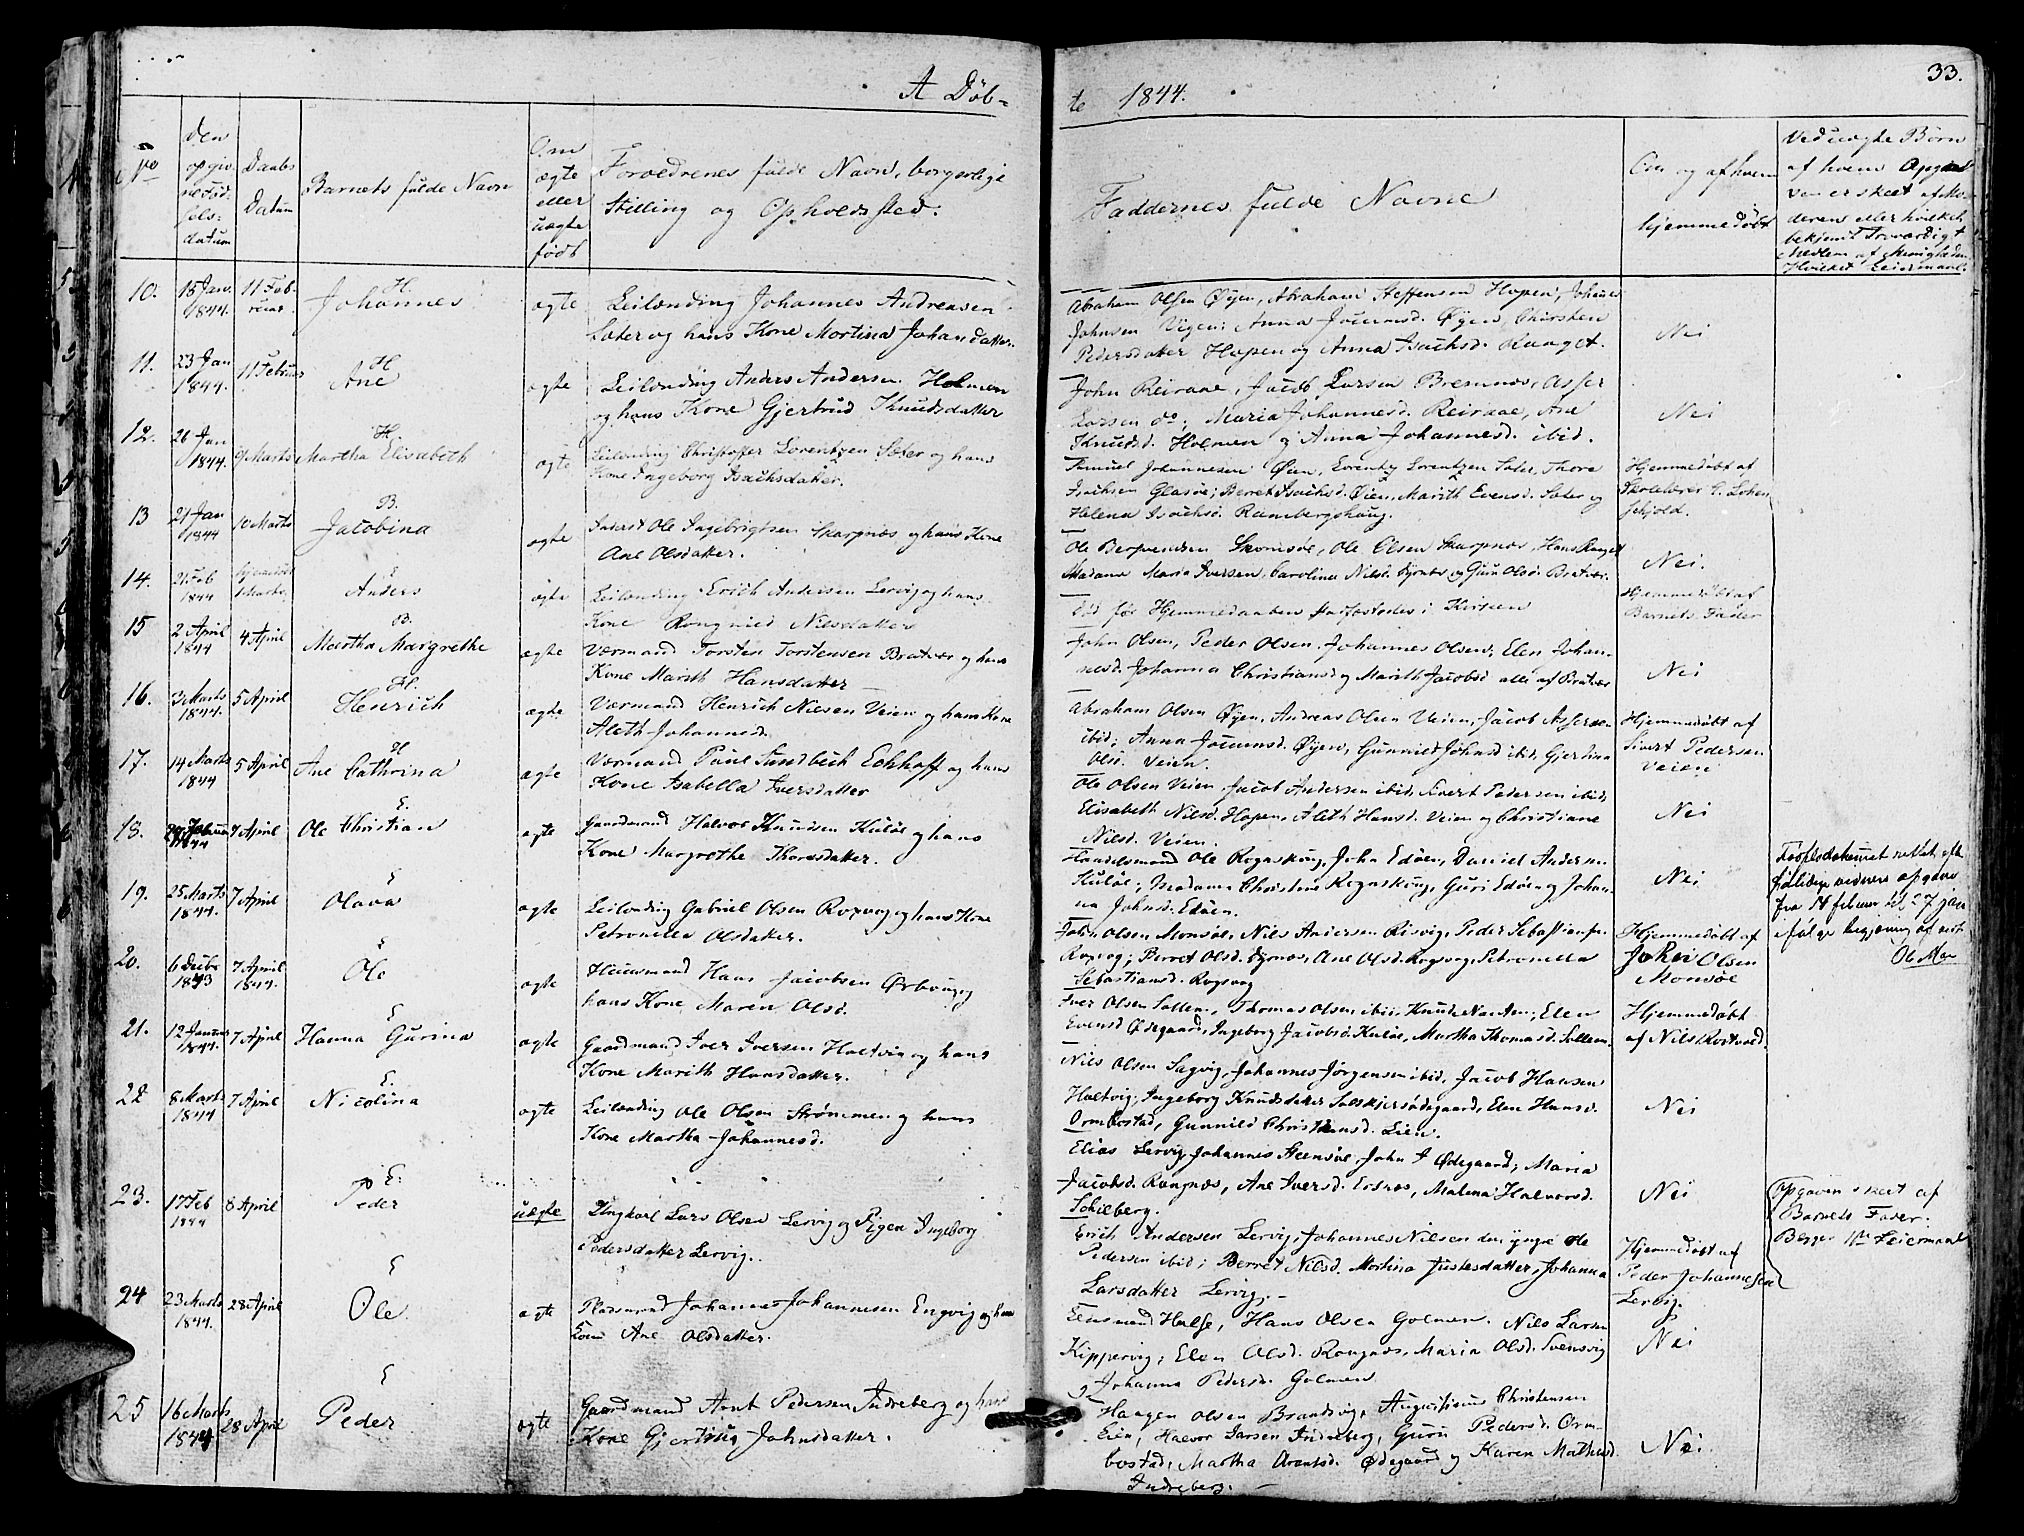 A Döb-
te 1844.
33.
No
Den opgivne Födselsdatum
Daabs Datum
Barnets fulde Navn
Om ægte eller uægte födt
Foreldrenes fulde Navn, borgerlige
Stilling og Opholdssted.
Faddernes fulde Navne
Om og af hvem
hjemmedöbt
Ved uægte Börn
af hvem Opgivel
sen er skeet af Mo-
deren eller hvilket
bekjemt Troværdigt
Medlem af Menigheden
Hvilket Leiermaal.
10. 15 Jan. 1844. 11 Februar H. Johannes ægte
Leilænding Johannes Andreasen
Sæter og hans Kone Martina Johansdatter.
Abraham Olsen Öyen, Abraham Steffensen Hopen, Johannes
Johnsen Vigen; Anna Jouensd. Öyen, Chirsten
Pedersdatter Hopen og Anna Isachsd.
Nei
11. 23 Jan 1844. 11 Februar H Ane ægte
Leilænding Anders Andersen Holmen
og hans Kone Gjertrud Knudsdatter
John Reiraae, Jacob Larsen Bremnes, Asser
Larsen do; Maria Johannesd. Reiraae, Ane
Knudsd. Holmen og Anna Johannesd. ibid.
Nei
12. 26 Jan 1844. 9 Marts H. Martha Elisabeth ægte
Leilænding Christopher Lorentzen Sæter og hans
Kone Ingeborg Isachsdatter.
Samuel Johannesen Öien, Lorentz Lorentzen Sæter, Thore
Isachsen Glasöe; Beret Isachsd. Öien, Marith Evensd. Sæter og
Helena Isachsd. Ramberghaug.
Hjemmedöbt af
Skolelærer
13 21 Jan 1844 10 Marts B. Jacobina ægte
Inderst Ole Ingebrigtsen Skarpnes og hans Kone
Ane Olsdatter.
Ole Olsen Skarpnæs, Hans
Madame Maria Iversen, Carolina Nilsd. Tyrnæs og Guru Olsd. Bratvær.
Nei.
14. 21 Feb 1844 E Anders ægte
Leilænding Erich Andersen Lervig og hans
Kone Rangnild Nilsdatter
Död för Hjemmedaaben stadfæstedes i Kirken
Hjemmedöbt af
Barnets Fader
15 2 April 1844 4 April B. Martha Margrethe ægte
Værmand Torsten Torstensen Bratvær og hans
Kone Marith Hansdatter
John Olsen, Peder Olsen, Johannes Olsen; Elen Johan-
nesd. Johanna Christiansd. og Marith Jacobsd. alle af Bratvær
Nei
16. 3 Marts 1844. 5 April H. Henrich ægte
Værmand Henrich Nilsen Veien og hans Kone
Aleth Johannesd.
Abraham Olsen Öyen, Andreas Olsen Veien, Jacob Assersen
ibid; Anna Jouensd. Öyen, Gunnild Johnsd. ibid, Gjertina
Olsd. Veien.
Hjemmedöbt af
Sivert Pedersen
Veien
17. 14 Marts 1844 5 April H Ane Cathrina ægte
Værmand Paul Sundbech Eckhoff og hans
Kone Isabella Iversdatter
Ole Olsen Veien, Jacob Andersen ibid, Sivert Pedersen ibid;
Elisabeth Nilsd. Hopen, Aleth Hansd. Veien og Christiane
Nilsd. Veien.
Nei
18. 1844 7 April E. Ole Christian ægte
Gaardmand Halvor Knudsen Kulöe og hans
Kone Margrethe Thoresdatter.
Handelsmand Ole Rognskug, John Edöen, Daniel Andersen
Kulöe; Madame Christine Rognskug, Guri Edöen og Johan-
na Johnsd. Edöen.
Nei
fra 14 februar til 27 jan
ifölge begjering af
19. 25 Marts 1844. 7 April E Olava ægte
Leilænding Gabriel Olsen Roxvog og hans Kone
Petronella Olsdatter.
John Olsen Monsöe, Nils Andersen Risvig, Peder Sebastiansen
Roxvog; Berret Olsd. Tyrnæs, Ane Olsd. Roxvog, Petronella
Sebastiansd. Roxvog
Hjemmedöbt af
John Olsen
Monsöe
20. 6 Decbr 1843 7 April 1844. E Ole ægte
Huusmand Hans Jacobsen Örbog og
hans Kone Maren Olsd.
Iver Olsen Sollem, Thomas Olsen ibid, Knud; Elen
Evensd Ödegaard, Ingeborg Jacobsd. Kulöe, Martha Thomasd. Sollem
Hjemmedöbt
af Nils Rostvold.
21. 12 Januar 1844. 7 April E Hanna Gurina ægte
Gaardmand Iver Iversen Holtvig og hans
Kone Marith Hansdatter.
Nils Olsen Sagvig, Johannes Jörgensen ibid, Jacob Hansen
Holtvig; Ingeborg Knudsdatter, Elen Hansd.
Ormbostad, Gunnild Christensd. Lien.
Nei
22 8 Marts 1844 7 April E. Nicolina ægte
Leilænding Ole Olsen Strömmen og hans
Kone Martha Johannesd.
Elias Lervig, Johannes Steensöe, John A Ödegaard; Maria
Jacobsd. Rangnæs, Ane Iversd., Malena Halvorsd.
Schieberg.
Nei
23. 17 Feb 1844 8 April E. Peder uægte
Ungkarl Lars Olsen Lervig og Pigen Ingeborg
Pedersdatter Lervig.
Erich Andersen Lervig, Johannes Nilsen den yngre Ole
Pedersen ibid; Berret Nilsd. Martina Justesdatter, Johanna
Larsdatter Lervig.
Hjemmedöbt af
Peder Johannesen
Lervig.
Opgaven skeet af
Barnets Fader.
Begges 1te Leiermaal
24 23 Marts 1844. 28 April E Ole ægte
Pladsmand Johannes Johannesen Engvig og hans
Kone Ane Olsdatter.
Eensmand Halse, Hans Olsen Golmen. Nils Larsen
Kippervig; Elen Olsd. Rangnæs, Maria Olsd. Svensvig
Johanna Pedersd. Golmen
Nei
25 16 Marts 1844 28 April E Peder ægte
Gaardmand Arnt Pedersen Indreberg og hans
Kone Gjertrud Johnsdatter.
Haagen Olsen Brandvig, Augustinus Christensen
Lien, Halvor Larsen Indreberg, Guru Pedersd. Orm-
bostad, Martha Arentsd. Ödegaard og Karen Mathiasd.
Indreberg.
Nei.